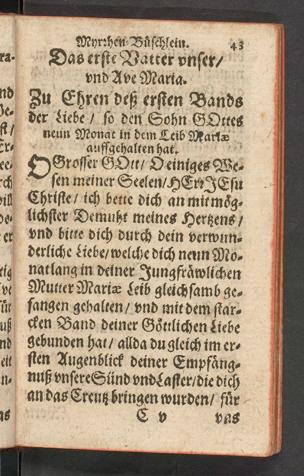 Myrrhen-Büschlein. 43
Das erste Vatter vnser/
vnd Ave Maria.
Zu Ehren deß ersten Bands
der Liebe / so den Sohn GOttes
neun Monat in dem Leib Mariæ
auffgehalten hat.
O Grosser GOtt / O einiges We-
sen meiner Seelen / HErr JEsu
Christe / ich bette dich an mit mög-
lichster Demuht meines Hertzens /
vnd bitte dich durch dein verwun-
derliche Liebe / welche dich neun Mo-
nat lang in deiner Jungfräwlichen
Mutter Mariæ Leib gleichsamb ge-
fangen gehalten / vnd mit dem star-
cken Band deiner Göttlichen Liebe
gebunden hat / allda du gleich im er-
sten Augenblick deiner Empfäng-
nuß vnsere Sünd vnd Laster / die dich
an das Creutz bringen wurden / für
C v vns